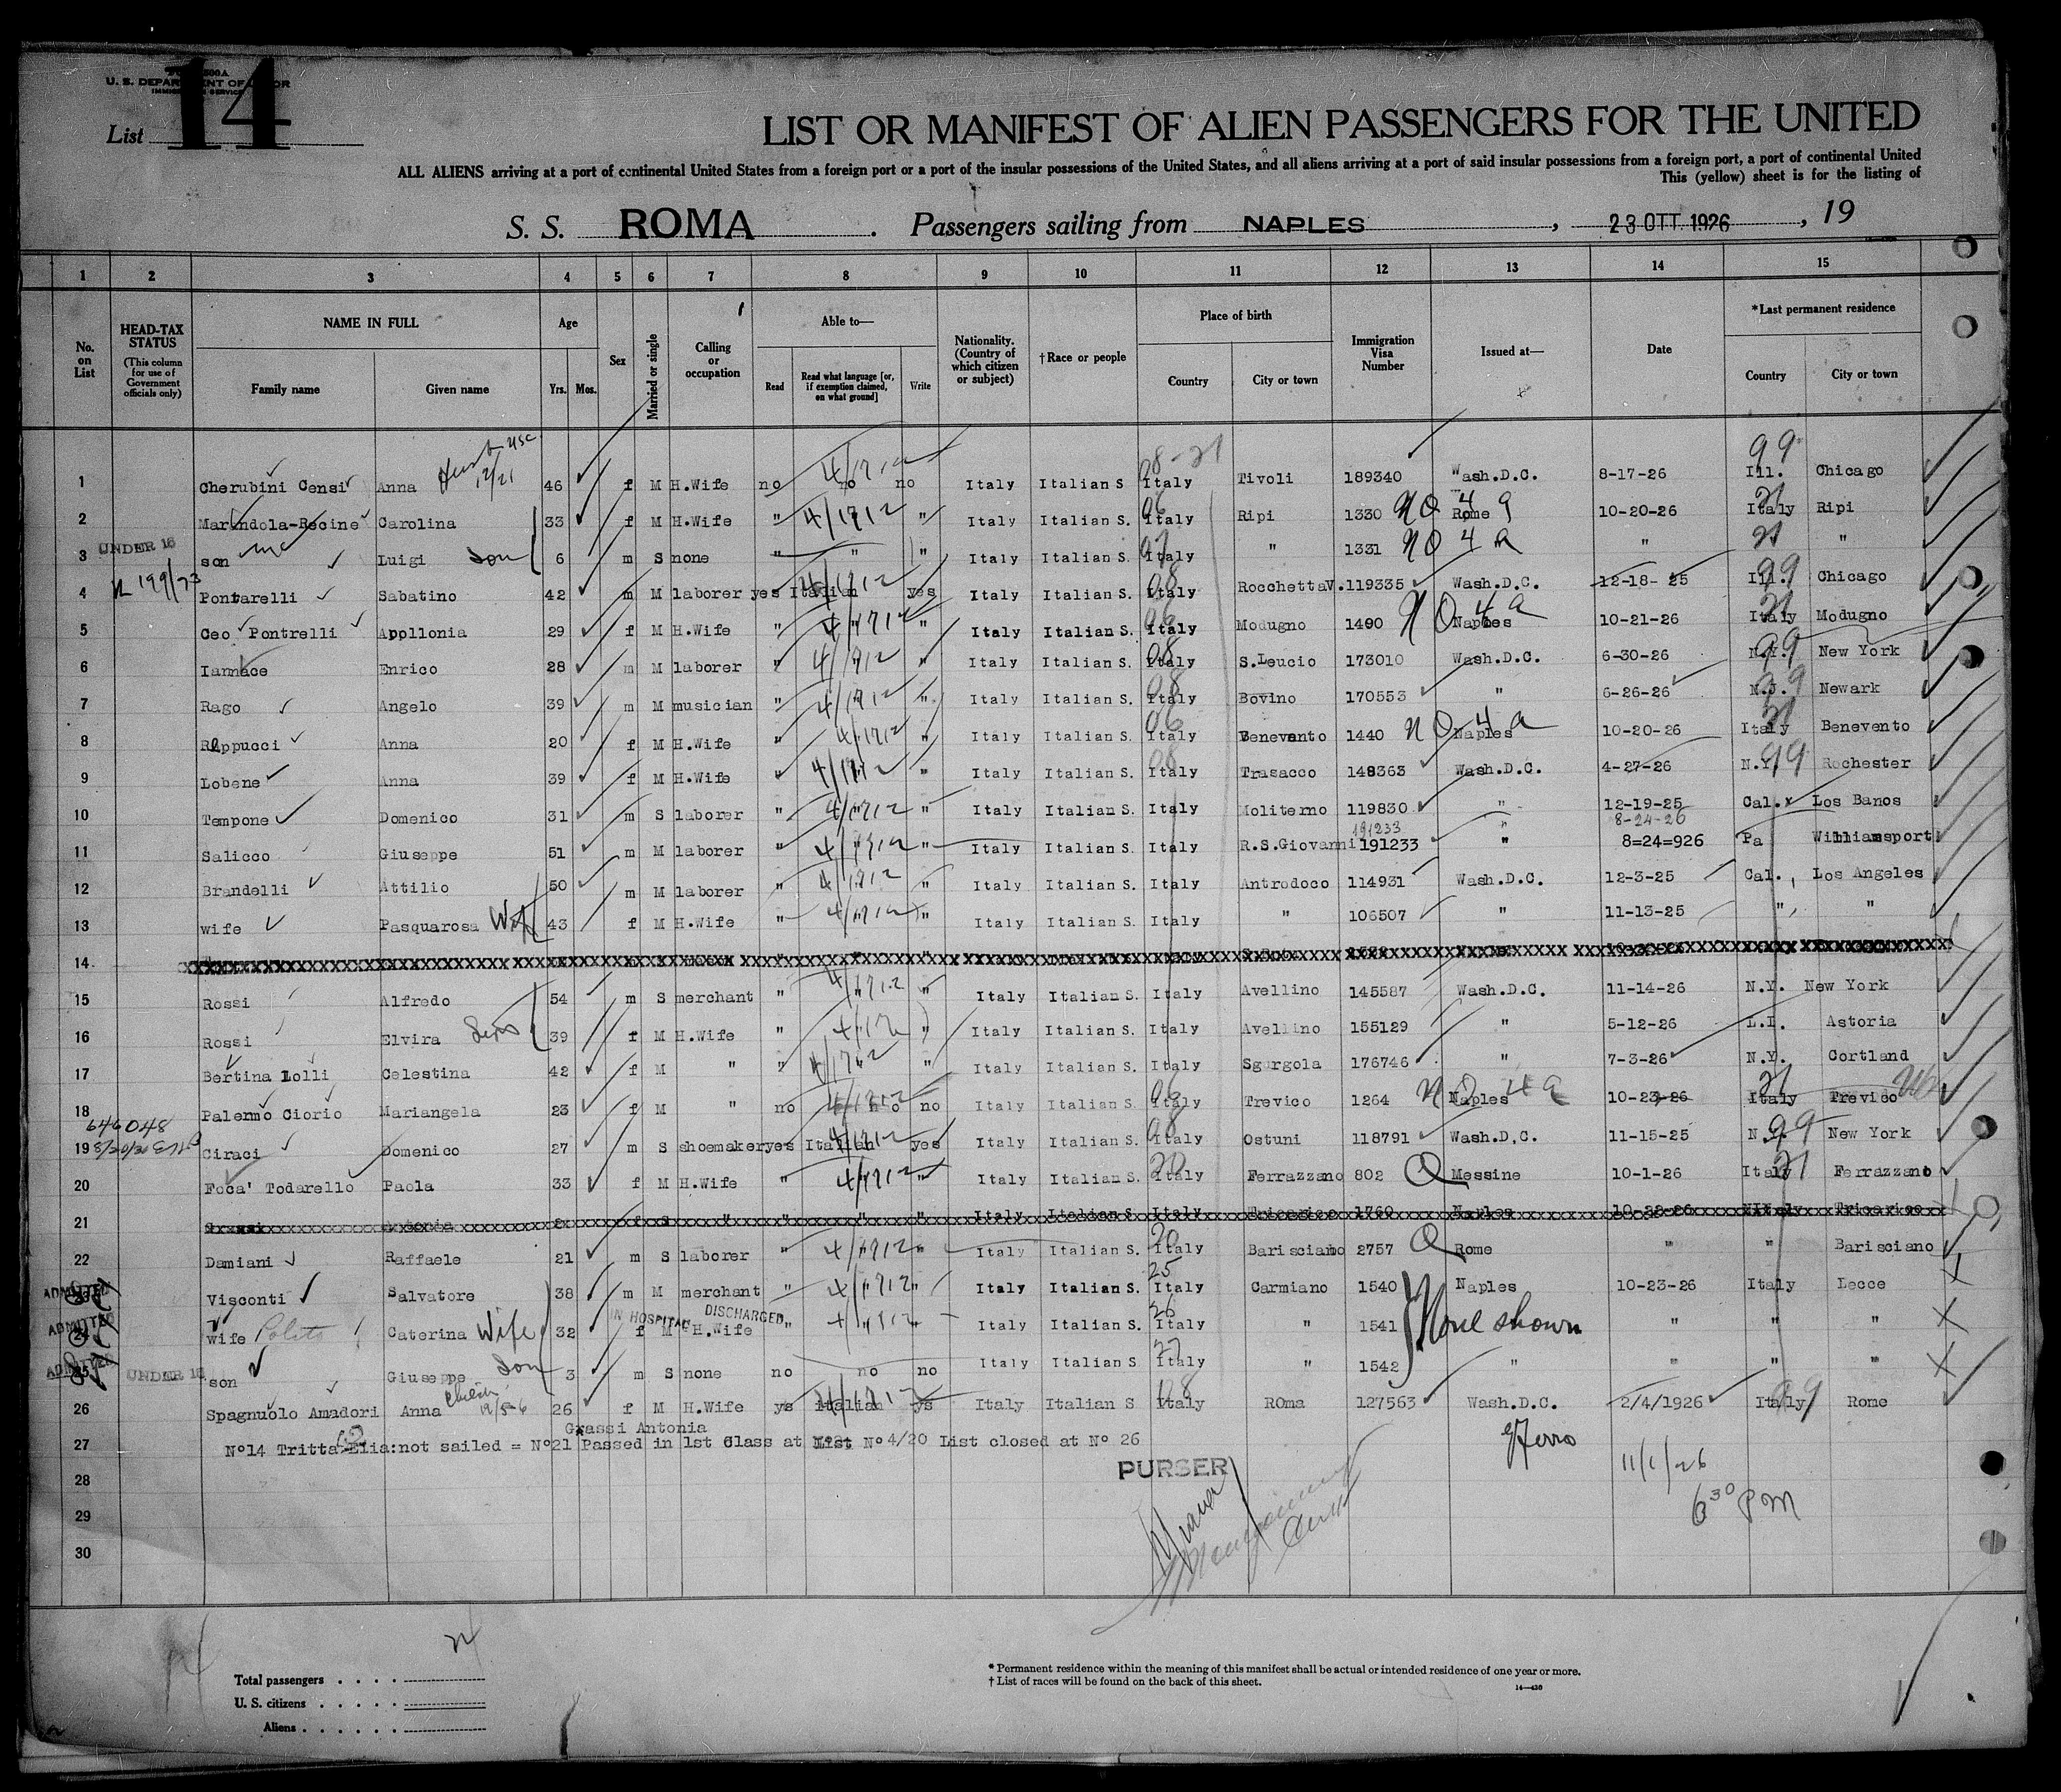 U. S. DEPARTMENT OF LABOR
IMMIGRATION SERVICE
List 14
LIST OR MANIFEST OF ALIEN PASSENGERS FOR THE UNITED
ALL ALIENS arriving at a port of continental United States from a foreign port or a port of the insular possessions of the United States, and all aliens arriving at a port of said insular possessions from a foreign port, a port of continental United
This (yellow) sheet is for the listing of
S. S. ROMA . Passengers sailing from NAPLES , 23 OTT. 1926 , 19
1 2 3 4 5 6 7 8 9 10 11 12 13 14 15
No. on List
HEAD-TAX STATUS (This column for use of Government officials only)
NAME IN FULL
Family name Given name
Age
Yrs. Mos.
Sex
Married or single
Calling or occupation
Able to—
Read Read what language [or, if exemption claimed, on what ground] Write
Nationality. (Country of which citizen or subject)
†Race or people
Place of birth
Country City or town
Immigration Visa Number
Issued at—
Date
*Last permanent residence
Country City or town
1 Cherubini Censi Anna 12/21 usc 46 f M H.Wife no no no 4/1912 Italy Italian S Italy 08-21 Tivoli 189340 Wash.D.C. 8-17-26 Ill. 99 Chicago
2 Marandola-Recine Carolina 33 f M H.Wife " 4/1912 " Italy Italian S. Italy 06 Ripi 1330 NO 4 a Rome 10-20-26 Italy 21 Ripi
UNDER 16
3 son Luigi Son 6 m S none " " " Italy Italian S. Italy " 1331 NO 4 a " 21 "
4 Pontarelli Sabatino 42 m M laborer yes Italian 4/1912 yes Italy Italian S. Italy 08 RocchettaV. 119335 Wash.D.C. 12-18- 25 Ill. 99 Chicago
5 Ceo Pontrelli Appllonia 29 f M H.Wife " 4/1912 " Italy Italian S. Italy Modugno 1490 NO 4 a Naples 10-21-26 Italy 21 Modugno
6 Iannace Enrico 28 m M laborer " 4/1912 " Italy Italian S. Italy 08 S.Leucio 173010 Wash.D.C. 6-30-26 N.Y. 99 New York
7 Rago Angelo 39 m M musician " 4/1912 " Italy Italian S. Italy 08 Bovino 170553 " 6-26-26 N.J. 99 Newark
8 Rappucci Anna 20 f M H.Wife " 4/1912 " Italy Italian S. Italy 06 Benevento 1440 NO 4 a Naples 10-20-26 Italy 21 Benevento
9 Lobene Anna 39 f M H.Wife " 4/1912 " Italy Italian S. Italy 08 Trasacco 148363 Wash.D.C. 4-27-26 N.Y. 99 Rochester
10 Tempone Domenico 31 m S laborer " 4/1912 " Italy Italian S. Italy Moliterno 119830 " 12-19-25 Cal. Los Banos
191233 8-24-26
11 Salicco Giuseppe 51 m M laborer " 4/1912 " Italy Italian S. Italy R.S.Giovanni 191233 " 8=24=926 Pa Williamsport
12 Brandelli Attilio 50 m M laborer " 4/1912 " Italy Italian S. Italy Antrodoco 114931 Wash.D.C. 12-3-25 Cal. Los Angeles
13 wife Pasquarosa Wife 43 f M H.Wife " 4/1912 " Italy Italian S. Italy " 106507 " 11-13-25 " "
14
15 Rossi Alfredo 54 m S merchant " 4/1912 " Italy Italian S. Italy Avellino 145587 Wash.D.C. 11-14-26 N.Y. New York
16 Rossi Elvira 39 f M H.Wife " " Italy Italian S. Italy Avellino 155129 " 5-12-26 L.I. Astoria
17 Bertina Lolli Celestina 42 f M " " " Italy Italian S. Italy Sgurgola 176746 " 7-3-26 N.Y. Cortland
18 Palermo Ciorio Mariangela 23 f M " no no no 4/1912 Italy Italian S. Italy 06 Trevico 1264 NO 4 a Naples 10-23-26 Italy 21 Trevico
646048
19 Ciraci Domenico 27 m S shoemaker yes Italian 4/1912 yes Italy Italian S. Italy 08 Ostuni 118791 Wash.D.C. 11-15-25 N.Y. 99 New York
20 Foca' Todarello Paola 33 f M H.Wife " 4/1912 " Italy Italian S. Italy 20 Ferrazzano 802 Q Messine 10-1-26 Italy 21 Ferrazzano
21 Grassi Antonia S " " " " Italy Italian S Italy Tricarico 1760 Naples 10-22-26 Italy Tricarico
22 Damiani Raffaele 21 m S laborer " 4/1912 " Italy Italian S. Italy 20 Barisciano 2757 Q Rome " " Barisciano
ADMITTED Visconti Salvatore 38 m M merchant " 4/1912 " Italy Italian S. Italy 25 Carmiano 1540 Naples 10-23-26 Italy Lecce
IN HOSPITAL DISCHARGED
ADMITTED 24 wife Caterina Wife 32 f M H.Wife " 4/1912 Italy Italian S. Italy 26 " 1541 None shown " " "
ADMITTED 25 UNDER 16 son Giuseppe Son 3 m S none no no no Italy Italian S Italy 27 " 1542 " " " "
26 Spagnuolo Amadori Anna 26 f M H.Wife ys italian ys Italy Italian S Italy ROma 127563 Wash.D.C. 2/4/1926 Italy Rome
Grassi Antonia
27 N°14 Tritta Elia:not sailed = N°21 Passed in 1st Class at List N° 4/20 List closed at N° 26
28
29
30
PURSER
11/1/26
6 30 PM
24
Total passengers
U. S. citizens
Aliens
* Permanent residence within the meaning of this manifest shall be actual or intended residence of one year or more.
† List of races will be found on the back of this sheet.
14—430